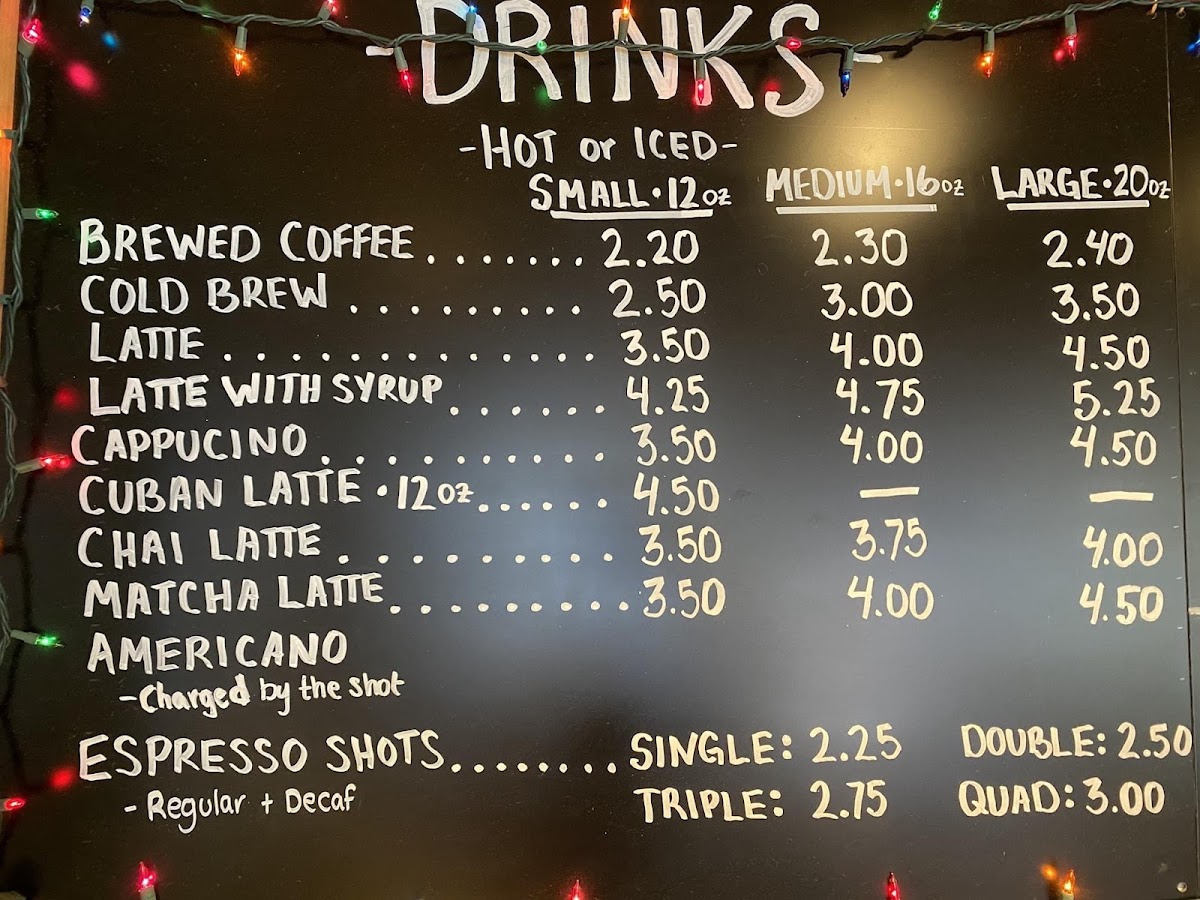 -DRINKS-
-HOT or ICED-
SMALL·12oz MEDIUM·16oz LARGE·20oz
BREWED COFFEE....... 2.20 2.30 2.40
COLD BREW ......... 2.50 3.00 3.50
LATTE ............. 3.50 4.00 4.50
LATTE WITH SYRUP...... 4.25 4.75 5.25
CAPPUCINO.......... 3.50 4.00 4.50
CUBAN LATTE ·12oz...... 4.50 — —
CHAI LATTE.......... 3.50 3.75 4.00
MATCHA LATTE.......... 3.50 4.00 4.50
AMERICANO
-Charged by the shot
ESPRESSO SHOTS........ SINGLE: 2.25 DOUBLE: 2.50
- Regular + Decaf TRIPLE: 2.75 QUAD: 3.00